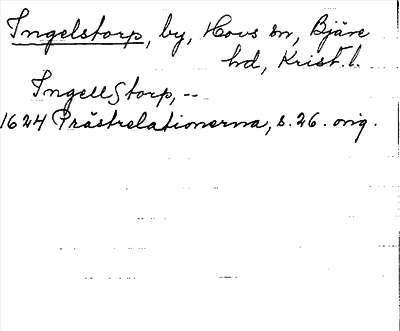 Ingelstorp, by, Hovs sn, Bjäre
hd, Krist. l.
Ingellstorp, --
1624 Prästrelationerna, s. 26. orig.